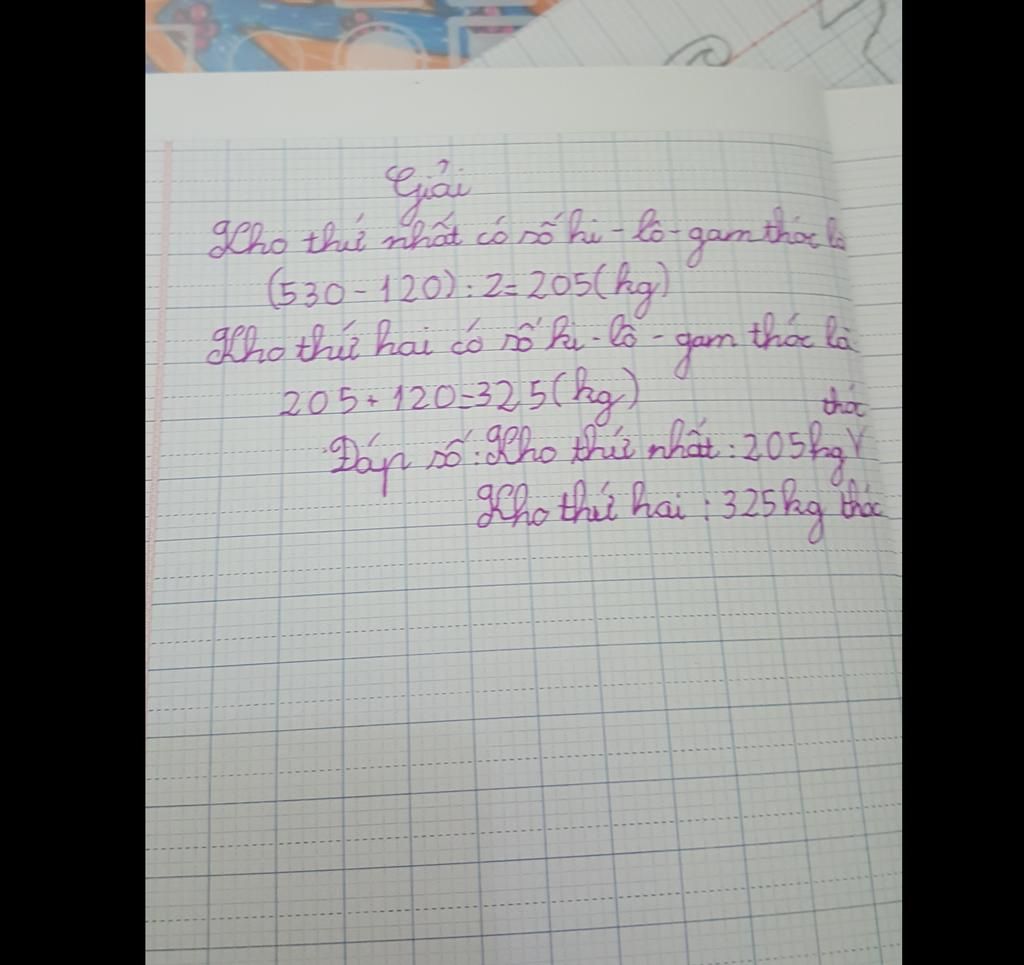 Giải
Kho thứ nhất có số ki-lô-gam thóc là
(530-120):2=205(kg)
Kho thứ hai có số ki-lô-gam thóc là
205+120=325(kg)
thóc
Đáp số:Kho thứ nhất:205kg
Kho thứ hai:325kg thóc